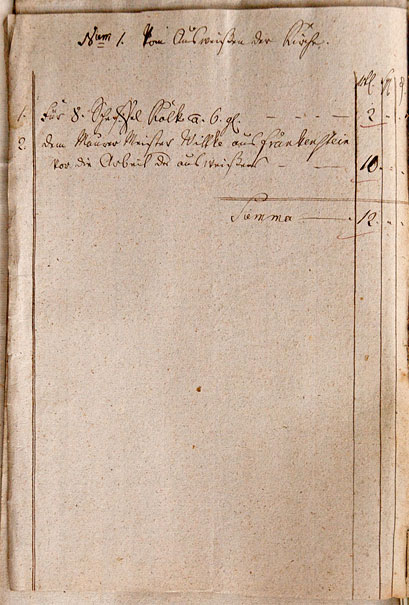 Num 1. Vom Ausweißen der Kirche.
rtl. gl. ₰
1. Für 8. Scheffel Kalk a. 6. gl. - - - - 2. - -
2. dem Maurer Meister Wilke aus Frankenstein
vor die Arbeit des ausweißens - - - 10. - -
Summa — 12. - -